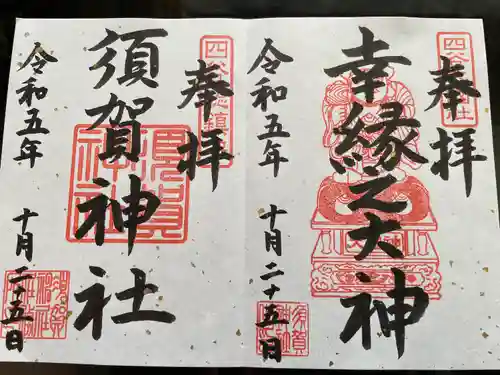 奉拝
幸縁之大神
令和五年
十月二十五日
奉拝
須賀神社
令和五年
十月二十五日
須賀神社